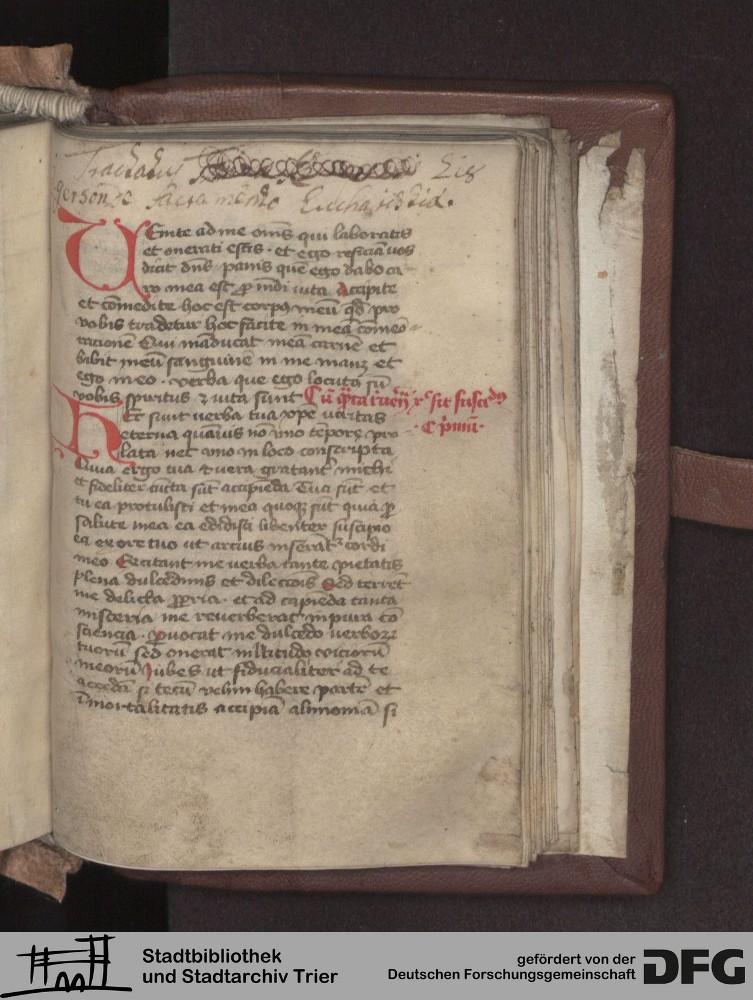 Tractatus
Gersonis sacramento Eucharistia.
Uenite ad me oms̄ qui laboratis
et onerati estis · et ego reficiā uos
dicit dn̄s panis quē ego dabo ca-
ro mea est ꝓ mūdi uita Accipite
et comedite hoc est corpꝰ meū qd̄ pro
vobis tradetur hoc facite in meā cōmeō-
racionē Qui māducat meā carnē et
bibit meū sanguinē in me manꝫ et
ego in eo · verba que ego locutꝰ sū
vobis spiritus ⁊ uita sunt Cū
Hec sunt verba tua xp̄e ueritas
· C p̄mū ·
eterna quāuis nō uno tēpore pro
lata nec uno in loco conscripta
Quia ergo tua ⁊ uera gratanť michi
et fideliter cūcta sūt accipiēda Tua sūt et
tu ea protulisti et mea quoqꝫ sūt quia ꝓ
salute mea ea edidisti libenter suscipio
ea ex ore tuo ut arcius inseranť cordi
meo Excitant me uerba tante pietatis
plena dulcedinis et dilecciōis Sed terrēt
me delicta ꝓpria · et ad capiēda tanta
misteria me reuerberat inpura cō
sciencia · ꝓuocat me dulcedo uerboꝝ
tuorū sed onerat mltitudo viciorū
meorū Iubes ut fiducialiter ad te
accedā si tecū velim habere partē et
īmortalitatis accipiā alimoniā si
Stadtbibliothek
und Stadtarchiv Trier
gefördert von der
Deutschen Forschungsgemeinschaft
DFG